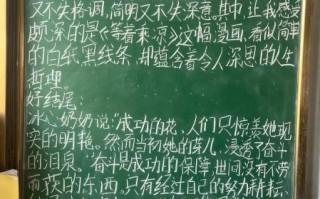 又不失格调,简明又不失深意。其中,让我感受
颇深的是《等着来凉》这幅漫画,看似简单
的白纸黑线条,却蕴含着令人深思的人生
哲理。
好结尾:
冰心奶奶说:"成功的花,人们只惊羡她现
实的明艳。然而当初她的芽儿,浸透了奋斗
的泪泉。"奋斗是成功的保障,世间没有不劳
而获的东西,只有经过自己的努力耕耘,